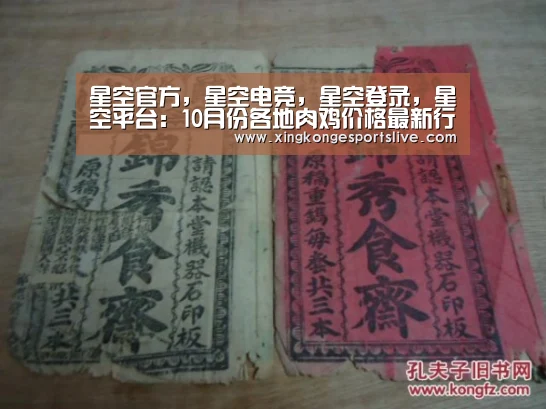 星空官方，星空电竞，星空登录，星
空平台：10月份各地肉鸡价格最新行
www.xingkongesportslive.com
請認本堂機器石印板
錦秀食齋
原稿
共三本
請認本堂機器石印板
錦秀食齋
原稿重鐫每套共三本
孔夫子旧书网
www.kongfz.com